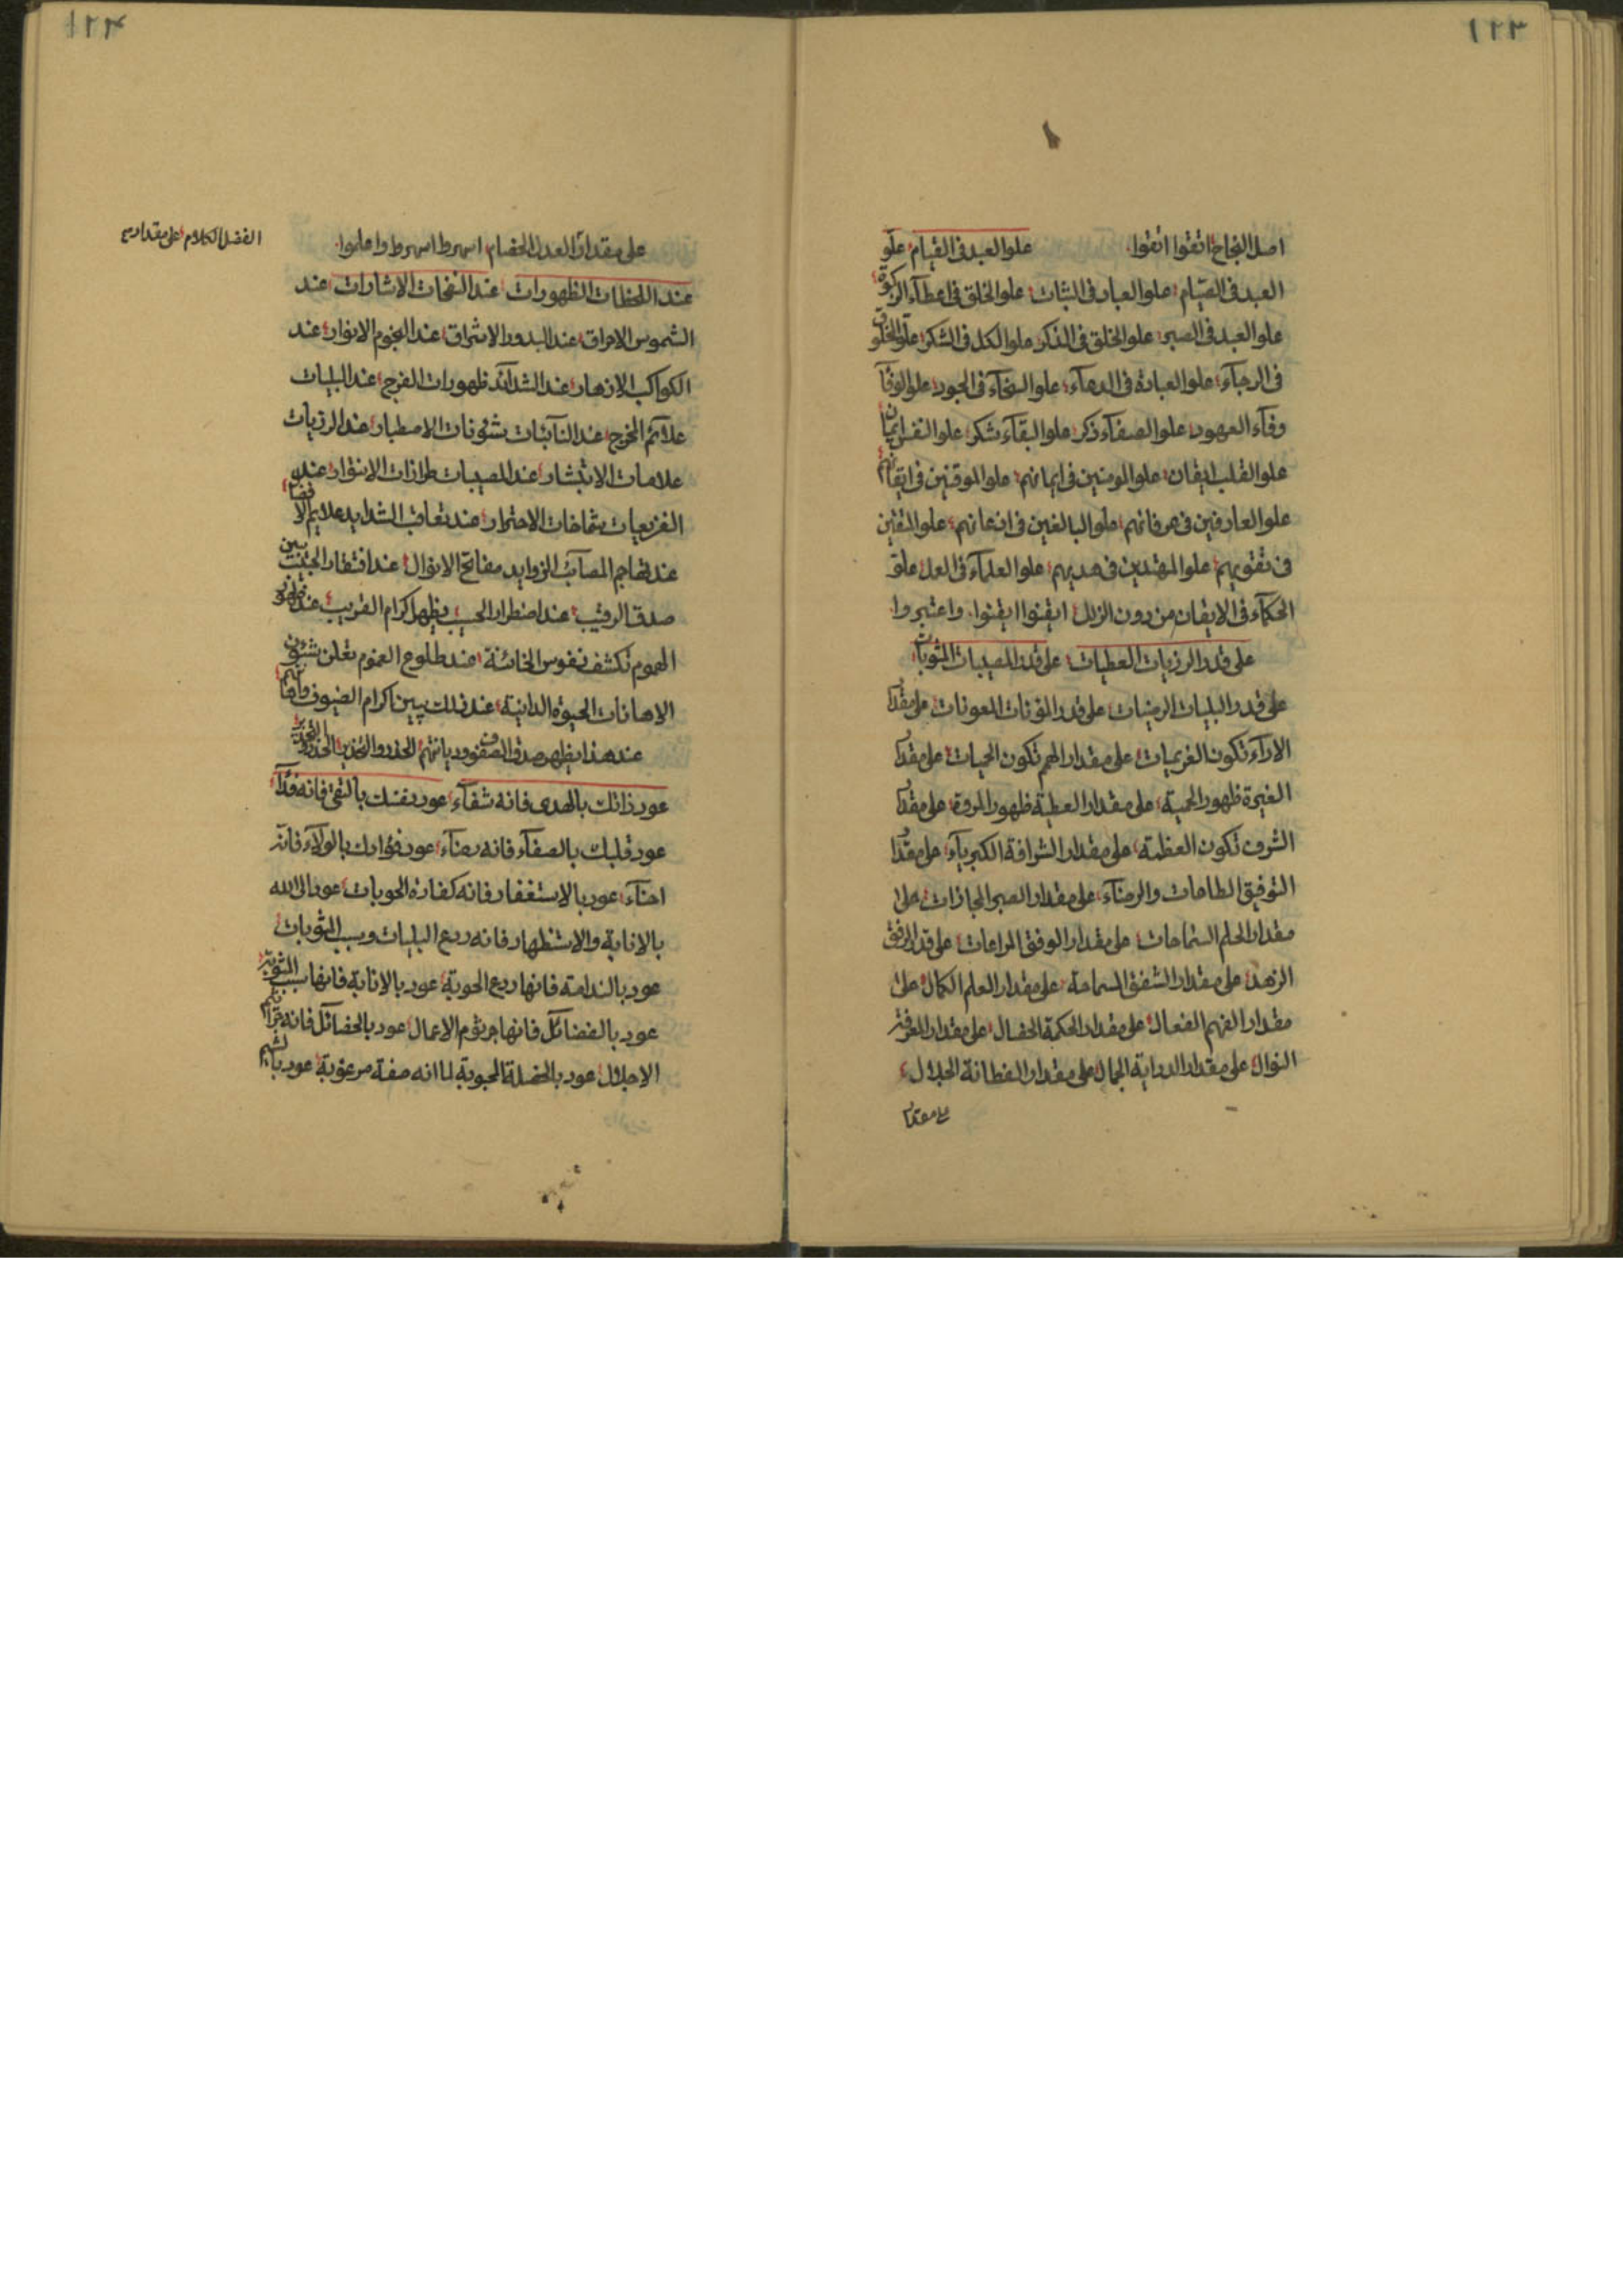 ١٢٣
اصل النجاح اتقوا اتقوا علو العبد فى القيام علو
العبد فى الصيام علو العباد فى الثبات علو الخلق فى اعطآء الزكوة
علو العبد فى الصبر علو الخلق فى الذكر علو الكل فى الشكر علو الخلوق
فى الرجآء علو العبادة فى الدعآء علو السخآء فى الجود علو الوفآ
وفآء العهود علو الصفآء ذكر علو البقآء شكر علو النفس ايمان
علو القلب ايقان علو المومنين فى ايمانهم علو الموقنين فى ايقانهم
علو العارفين فى عرفانهم علو البالغين فى اذعانهم علو المتقين
فى تقويهم علو المهتدين فى هديهم علو العلمآء فى العمل علو
الحكمآء فى الايقان من دون الزلل ايقنوا ايقنوا واعتبروا
على قدر الرزيات العطيات على قدر المصيبات المثوبات
على قدر البليات المرضيات على قدر المؤنات المعونات على مقدا
الارآء تكون الغريمات على مقدار الهمم تكون الحميات على مقدا
الغيرة ظهور الحمية على مقدار العطية ظهور المروة على مقدا
الشرف تكون العظمة على مقدار الشرافة الكبريآء على مقدا
التوفيق الطاعات والرضآء على مقدار الصبر المجازات على
مقدار الحلم السماحات على مقدار الوفق المراعات على قدر الرفق
الزهد على مقدار الشفق السماحة على مقدار العلم الكمال على
مقدار الفهم الفعال على مقدار الحكمة الخصال على مقدار المعرفة
النوال على مقدار الدراية الجمال على مقدار الفطانة الجلال
على مقدار
١٢٤
على مقدار العدل الخصام واعلموا
الفضل الكلام على مقدار
عند اللحظات الظهورات عند النفحات الاشارات عند
الشموس الاحراق عند البدور الاشراق عند النجوم الانوار عند
الكواكب الازهار عند الشدآئد ظهورات الفرج عند البليات
علآئم المخرج عند النآئبات شئونات الاصطبار عند الرزيات
علامات الاتبشار عند المصيبات طرازات الانوار عند
شماخات الاحترار عند تعاقب الشدايد علايم
عند تهاجم المصآئب الزوايد مفاتح الانوال عند افتقار الحبيب يبين
صدق الرقيب عند اضطرار الحبيب يظهر اكرام القريب عند ظهور
الهموم تكشف نفوس الخائنة عند طلوع الغموم تعلن شئون
الاهانات الحيوة الدانية عند ذلك يبين اكرام الضيوف
عند هذا يظهر صدق الصفوف وديانتهم الحذر والتحذير
عود ذاتك بالهدى فانه شفآء عود نفسك بالتقى فانه فدآء
عود قلبك بالصفآء فانه رضآء عود فؤادك بالولآء فانه
عود بالاستغفار فانه كفارة الحوبات عود الى الله
بالانابة والاستظهار فانه ردع البليات وسبب المثوبات
عود بالندامة فانها ردع الحوبة عود بالانابة فانها سبب المثوبة
عود بالفضآئل فانها جرثوم الاعمال عود بالخصآئل فانه
الاجلال عود بالخصلة المحبوبة لما انه صفة مرغوبة عود